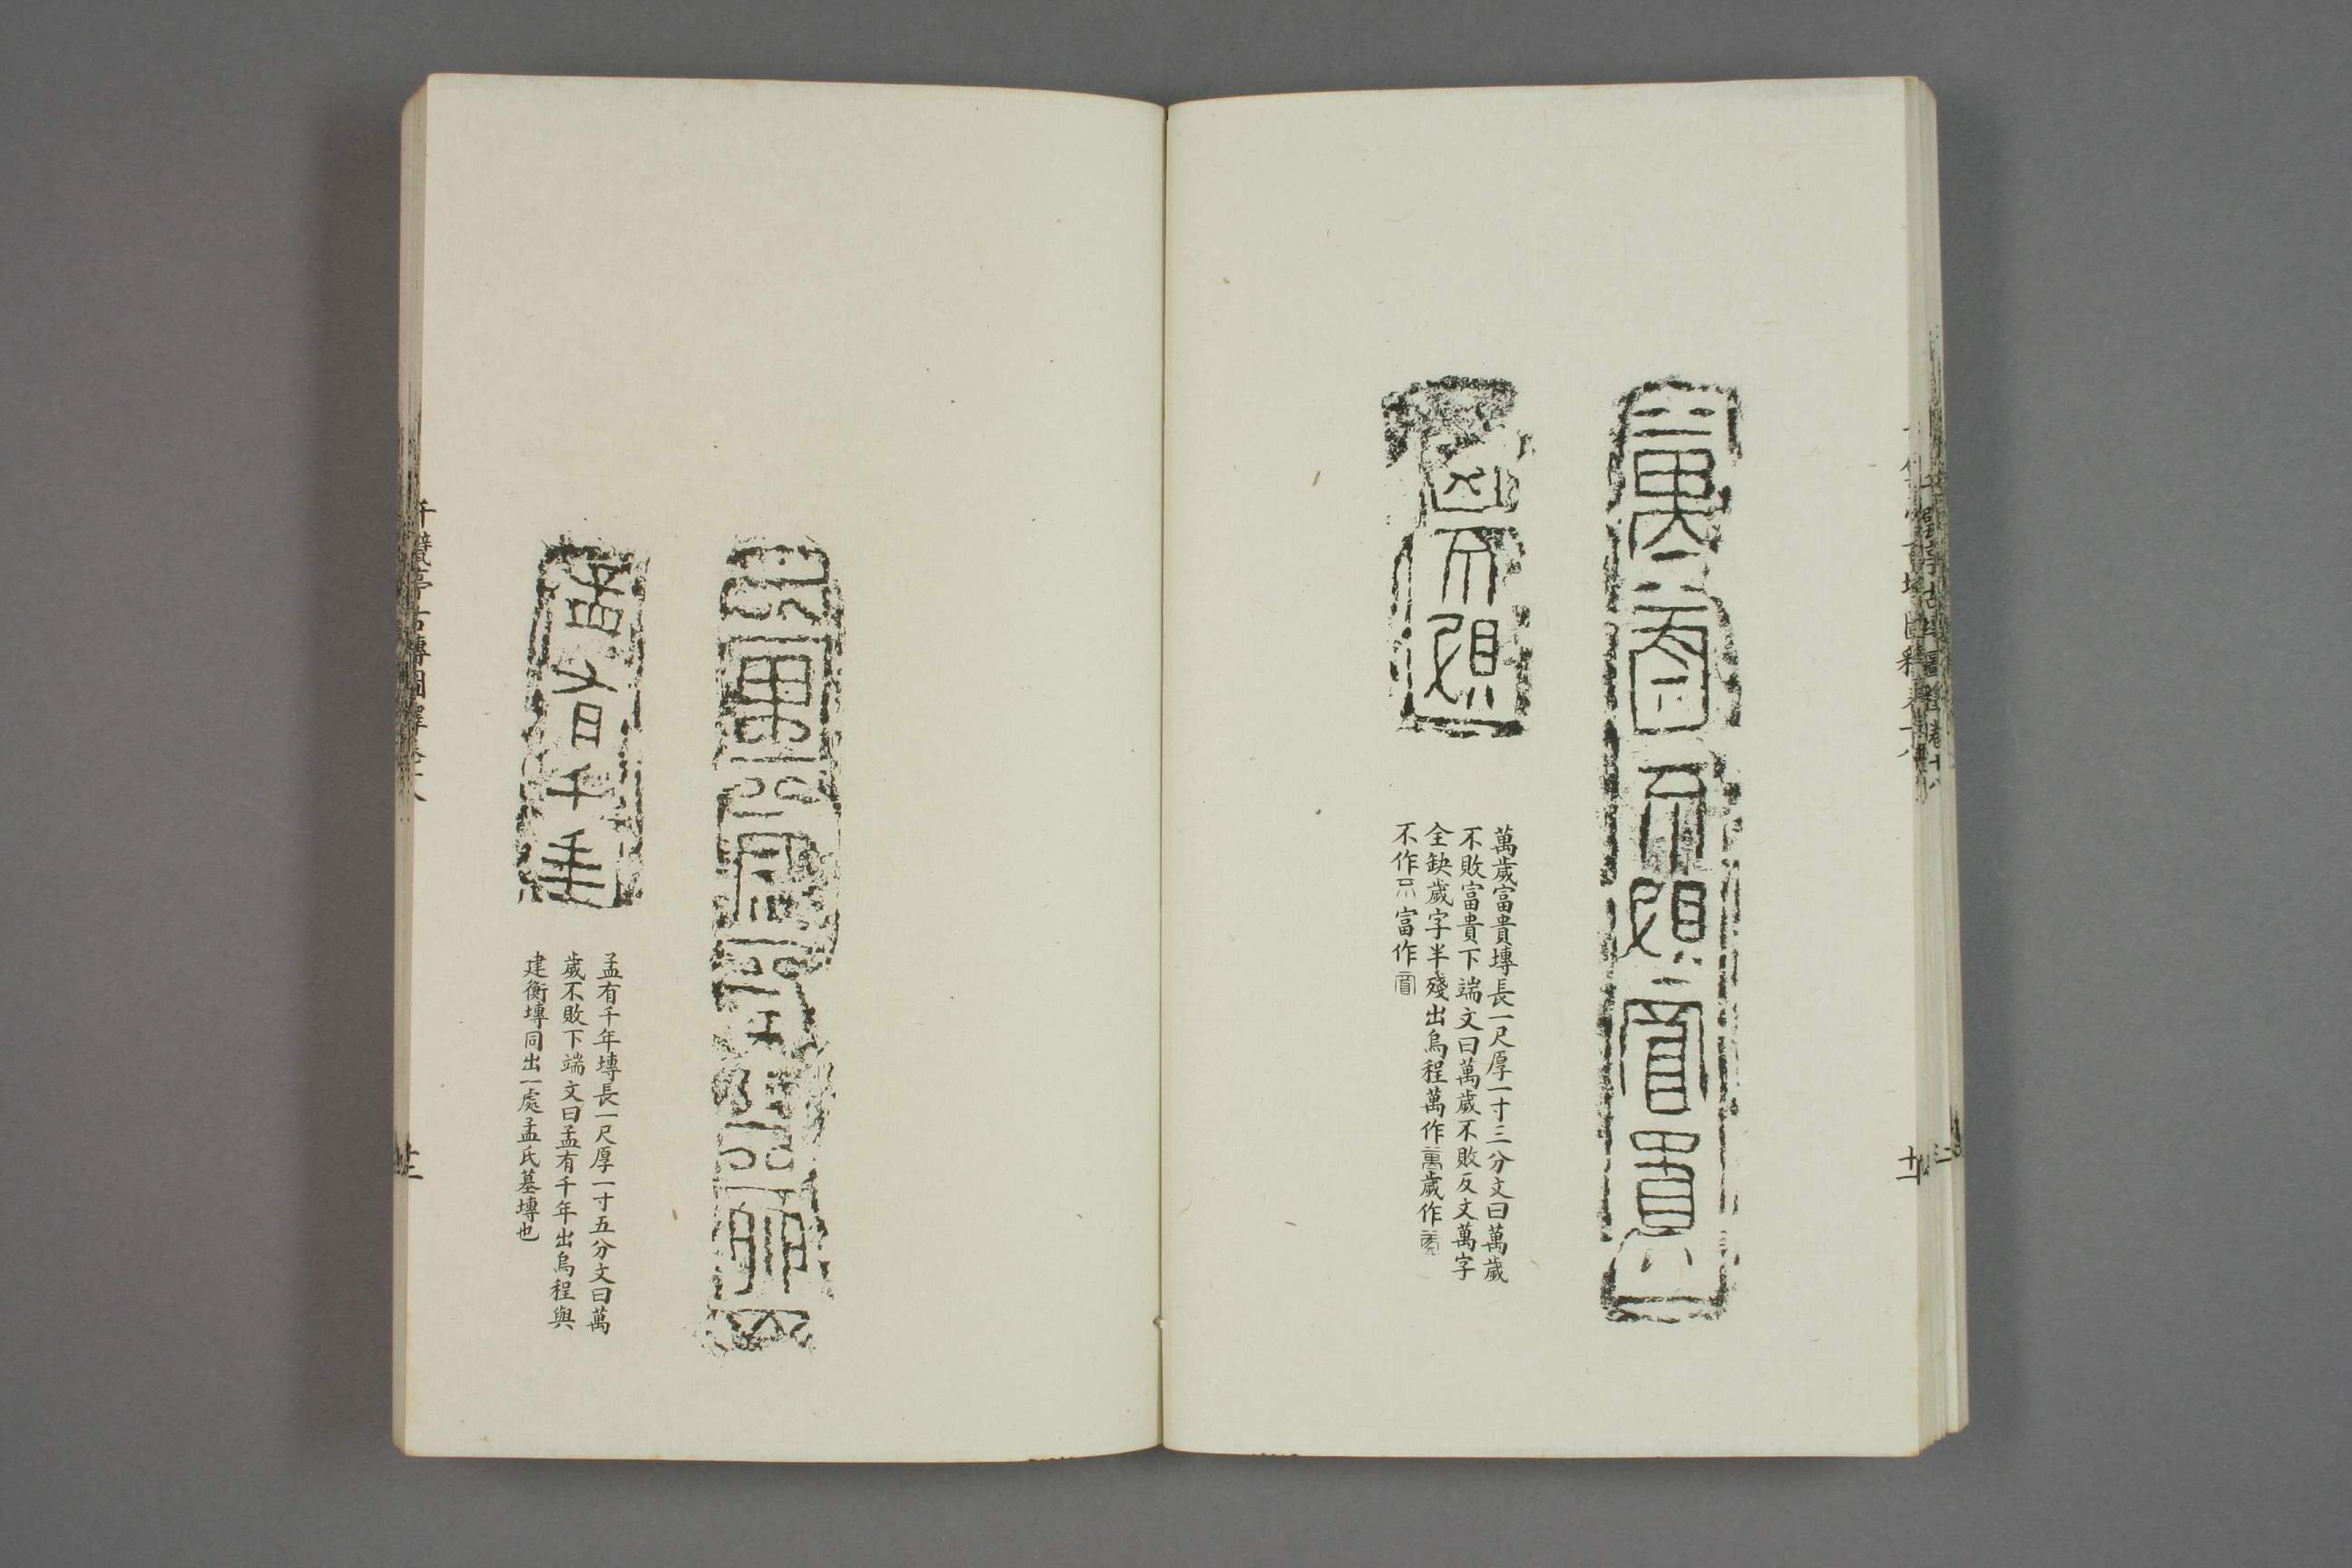 萬歲不敗富貴
歲不敗
萬歲富貴塼長一尺厚一寸三分文曰萬歲
不敗富貴下端文曰萬歲不敗反文萬字
全缺歲字半殘出烏程萬作歲作
不作富作
孟有千年
孟有千年塼長一尺厚一寸五分文曰萬
歲不敗下端文曰孟有千年出烏程與
建衡塼同出一處孟氏墓塼也
千甓亭古塼圖釋卷十八